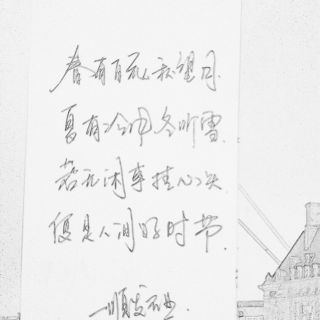 春有百花秋望月.
夏有凉风冬听雪.
若无闲事挂心头
便是人间好时节.